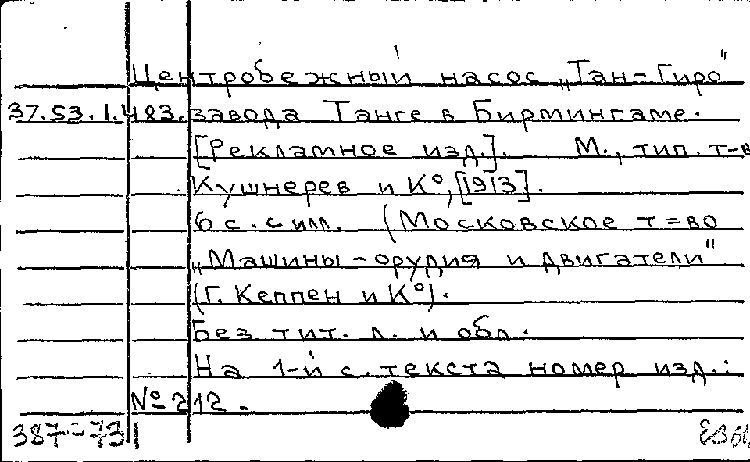 Центробежный насос „Тан-Гиро"
37.53.1.483. завода Танге в Бирмингаме.
[Рекламное изд.]. М., тип. т-в
Кушнерев и К°, [1913].
6 с. с илл. (Московское т=во
„Машины-орудия и двигатели"
(Г. Кеппен и К°).
Без тит. л. и обл.
На 1-й с. текста номер изд.:
№ 212.
387-73